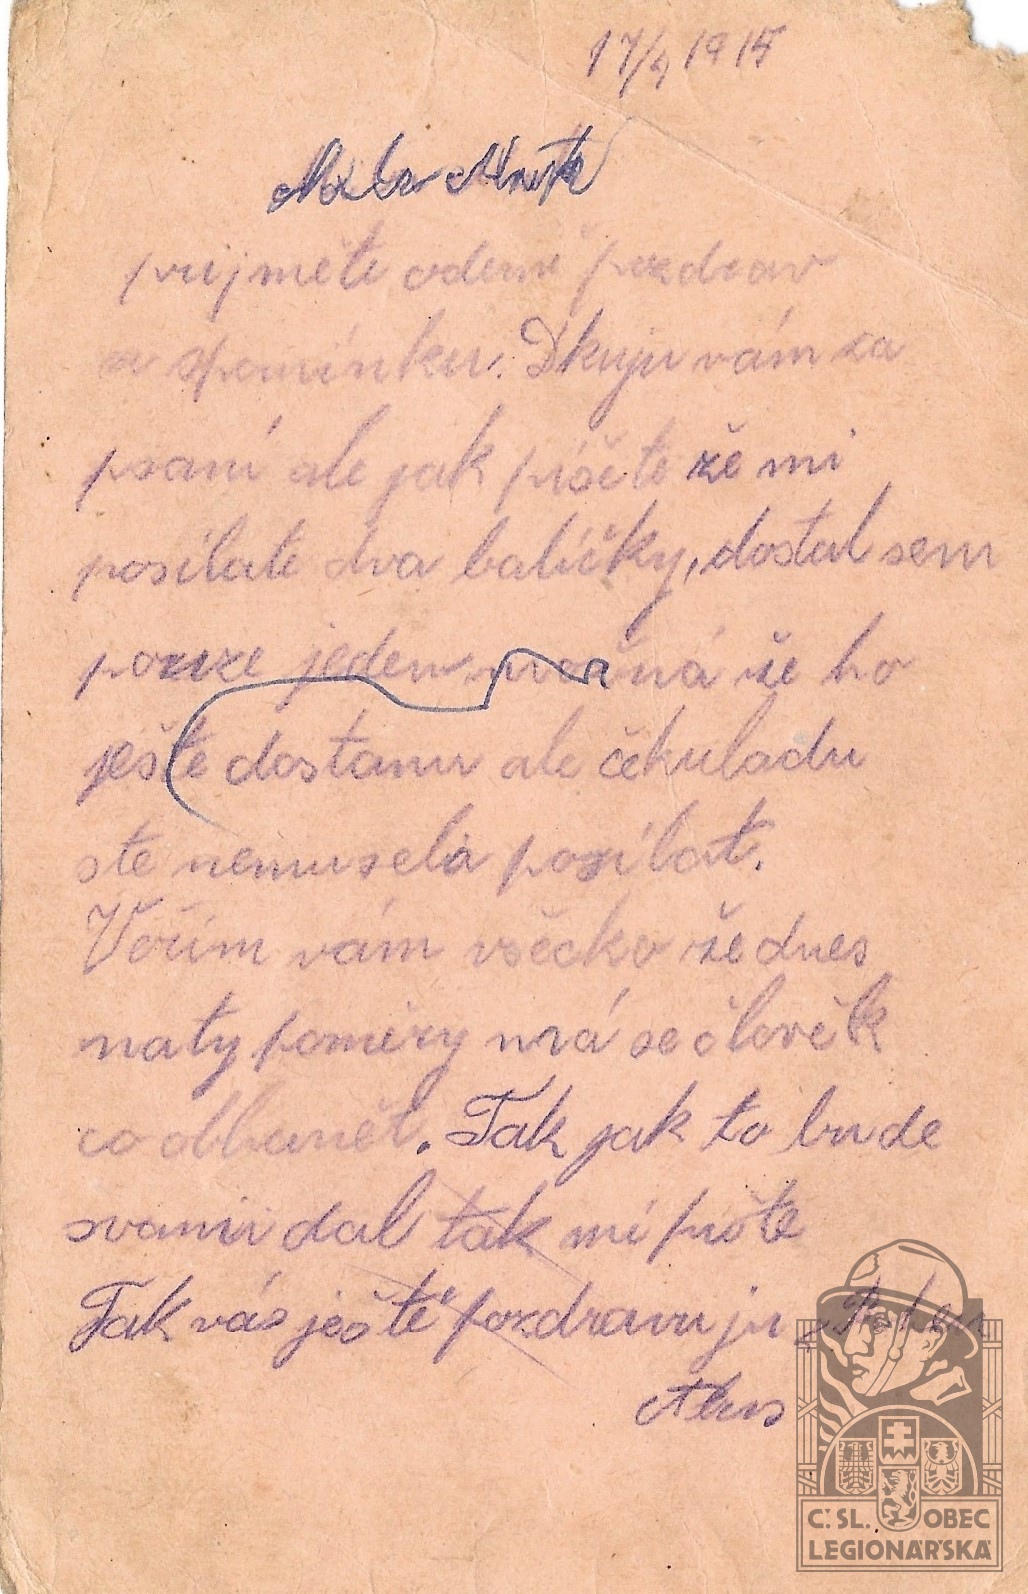 17/9 191
přijměte odemě pozdrav
a spomínku. Dkuju vám za
psaní ale jak píšete že mi
posílate dva balíčky, dostal sem
pouze jeden možná že ho
ještě dostanu ale čekuladu
ste nemusela posílat.
Věřím vám všecko že dnes
naty poměry má se člověk
co
Tak jak to bude
svami dal tak mi pište
Tak vás ještě pozdravuju
Č.SL. OBEC
LEGIONÁŘSKÁ